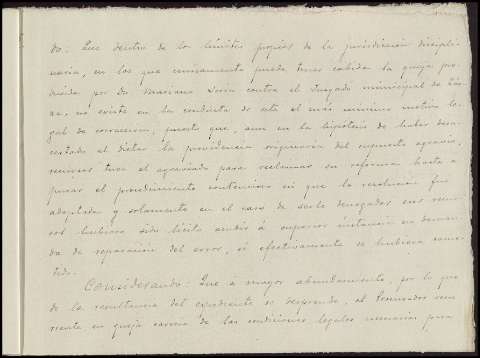 do: Que dentro de los límites propios de la jurisdicción discipli-
naria, en los que únicamente puede tener cabida la queja pro-
ducida por Dn. Mariano contra el Juzgado municipal de
no existe en la conducta de este el más mínimo motivo le-
gal de corrección, puesto que, aun en la hipótesis de haber desa-
certado al dictar la providencia originaria del supuesto agravio,
recursos tuvo el agraviado para reclamar su reforma hasta a-
purar el procedimiento contencioso en que la resolución fué
adoptada y solamente en el caso de serle denegados esos recur-
sos hubiera sido lícito acudir á superior instancia en deman-
da de reparación del error, si efectivamente se hubiera come-
tido.
Considerando: Que á mayor abundamiento, por lo que
de la resultancia del expediente se desprende, el
en queja carece de las condiciones legales necesarias para